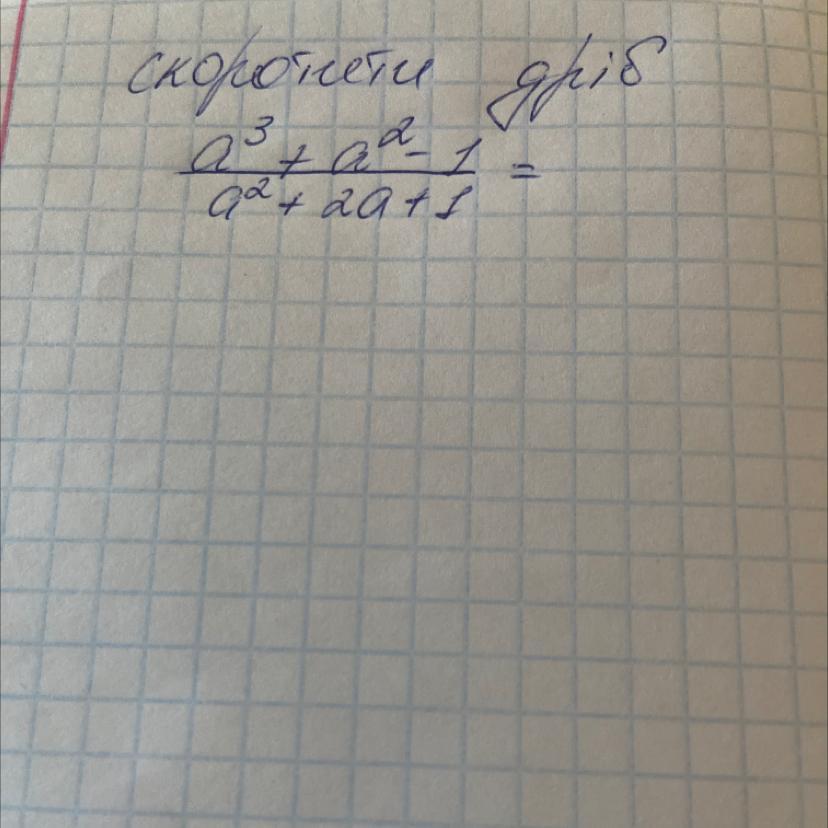 скоротити дріб
a³ + a² - 1
a² + 2a + 1 =